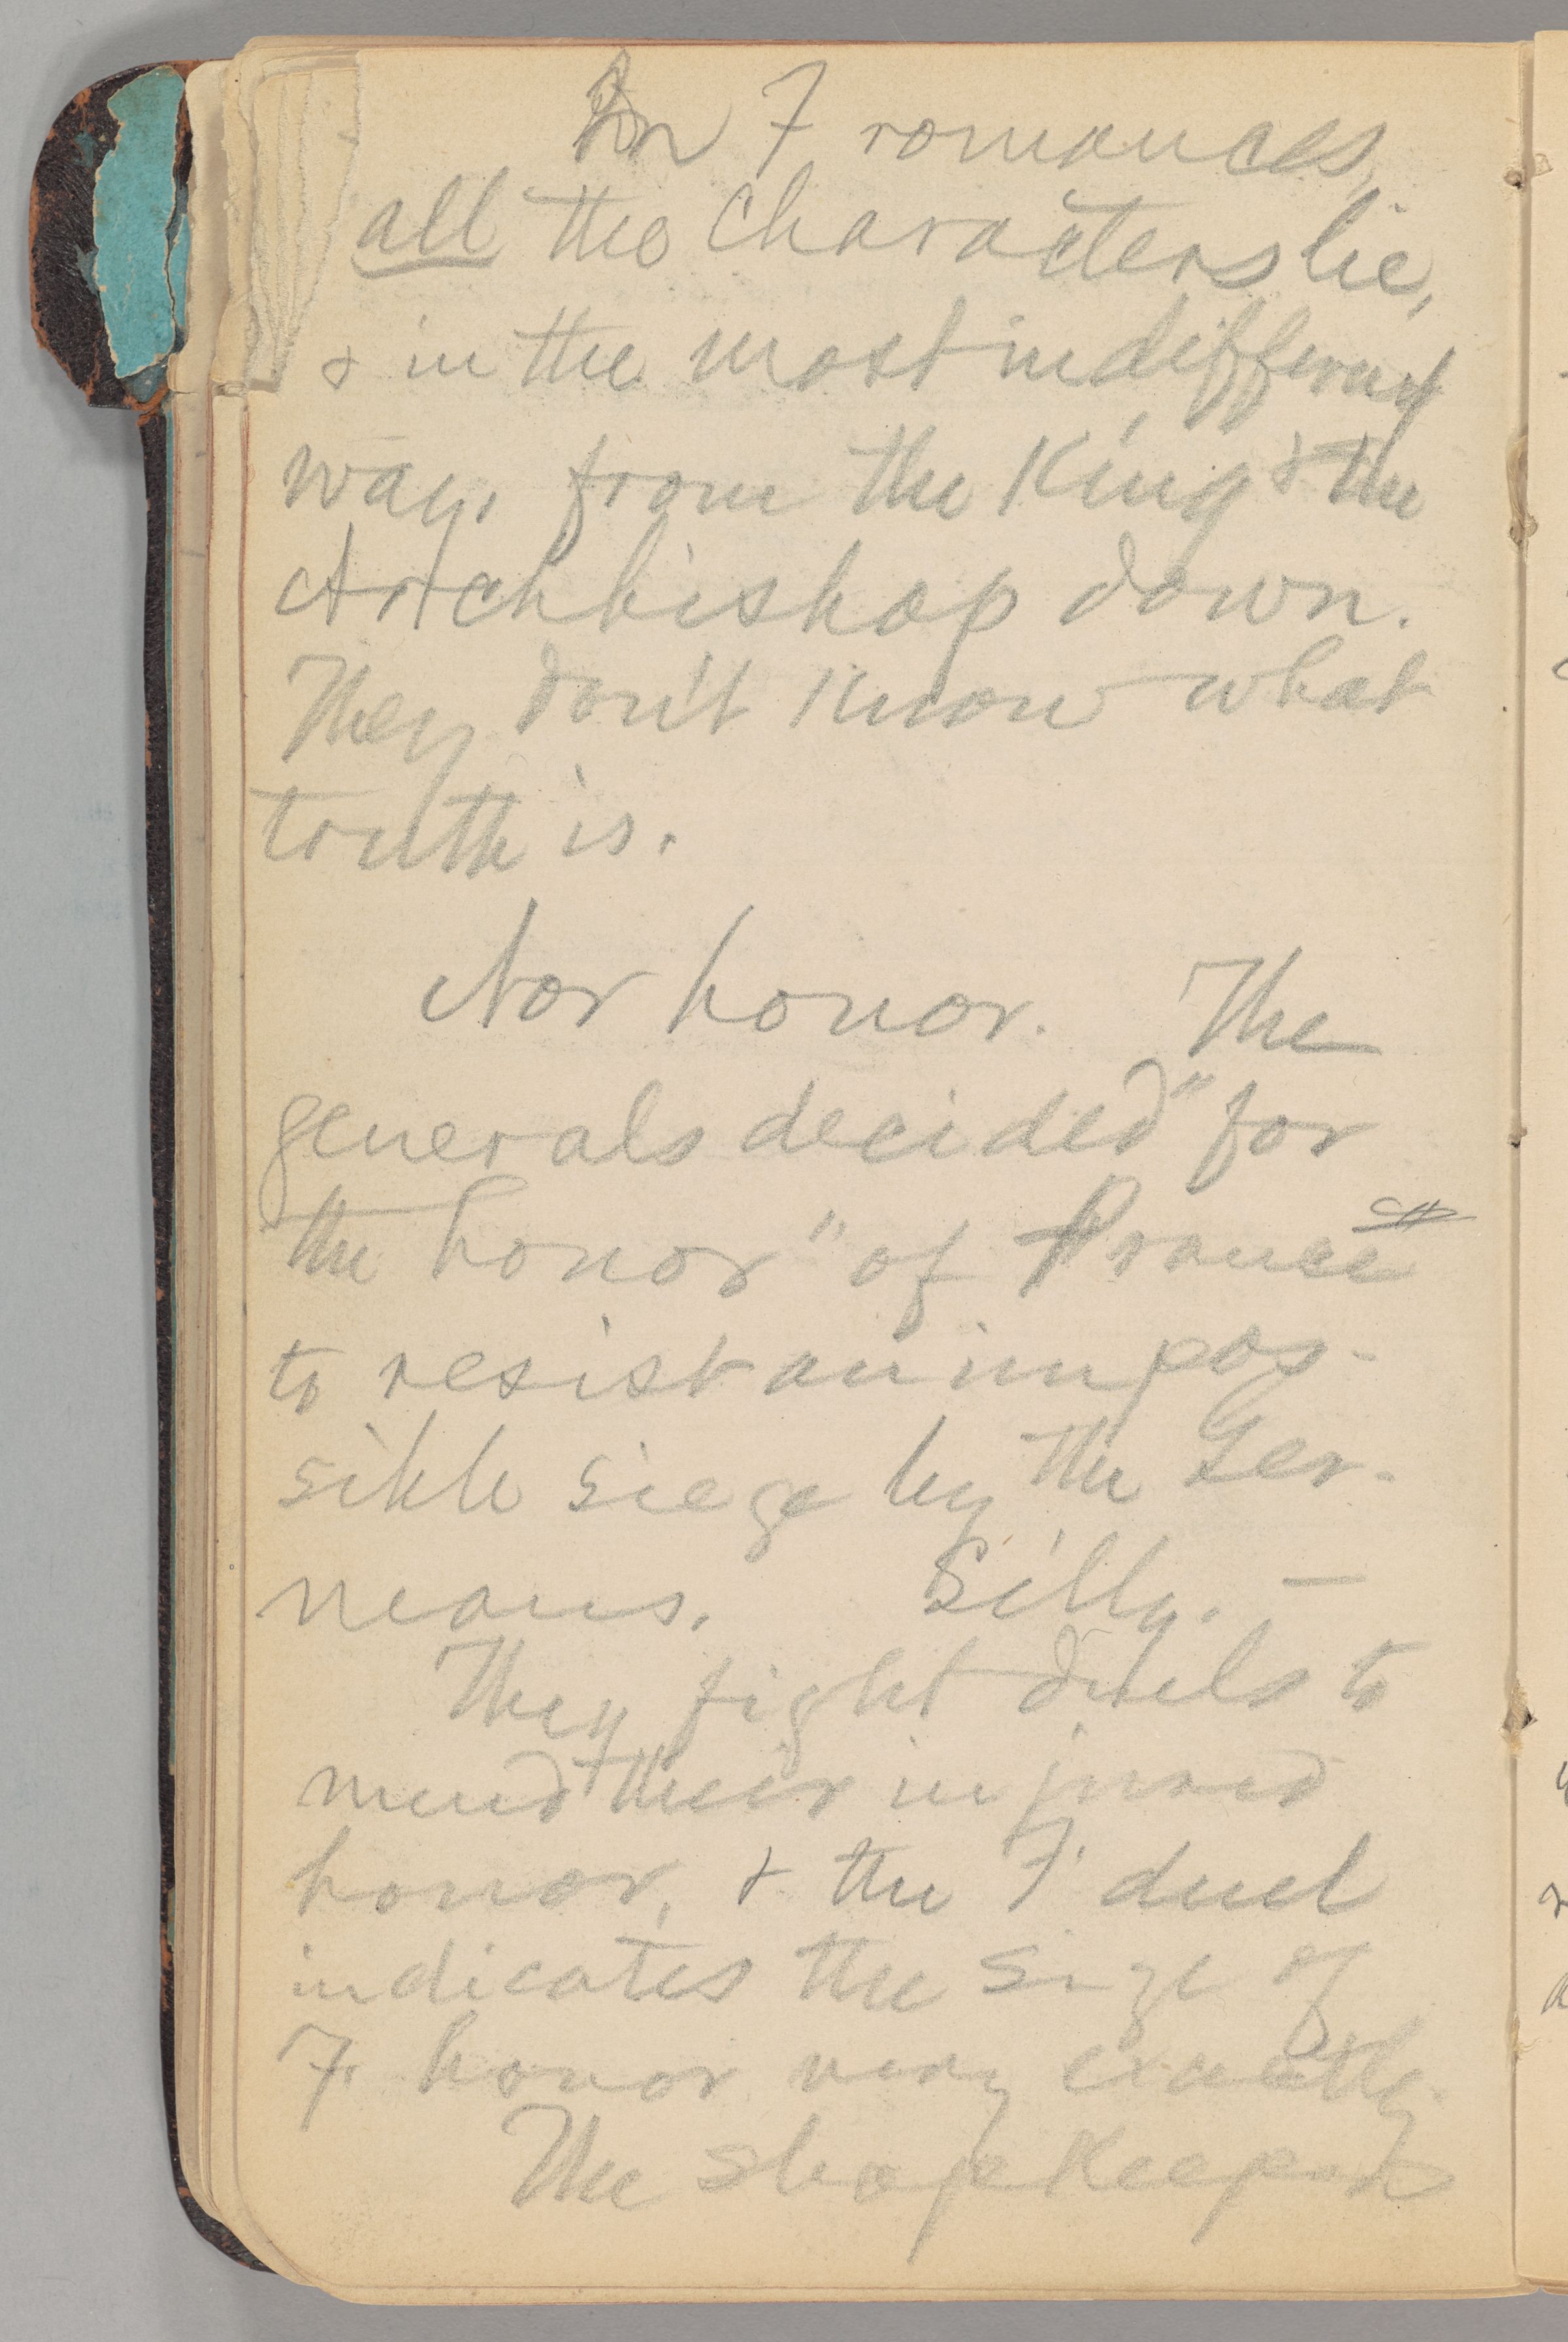 In F romances,
all the characters lie,
& in the most indifferent
way, from the King & the
Archbishop down.
They don't know what
truth is.
Nor honor. The
generals decided "for
the honor" of France
to resist an impos-
sible siege by the Ger-
mans. Silly. —
They fight duels to
mend their injured
honor, & the F. duel
indicates the size of
F. honor very exactly.
The shopkeepers